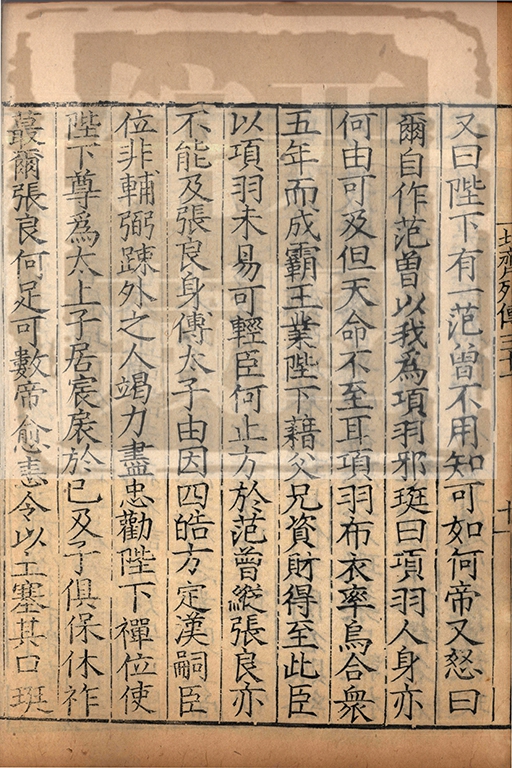 又曰陛下有一范曾不用知可如何帝又怒曰
爾自作范曾以我爲項羽邪珽曰項羽人身亦
何由可及但天命不至耳項羽布衣率烏合衆
五年而成霸王業陛下藉父兄資財得至此臣
以項羽未易可輕臣何止方於范曾縱張良亦
不能及張良身傅太子由因四皓方定漢嗣臣
位非輔弼踈外之人竭力盡忠勸陛下禪位使
陛下尊爲太上子居宸扆於已及子俱保休祚
蕞爾張良何足可數帝愈恚令以土塞其口珽
北齊列傳三十一
十一